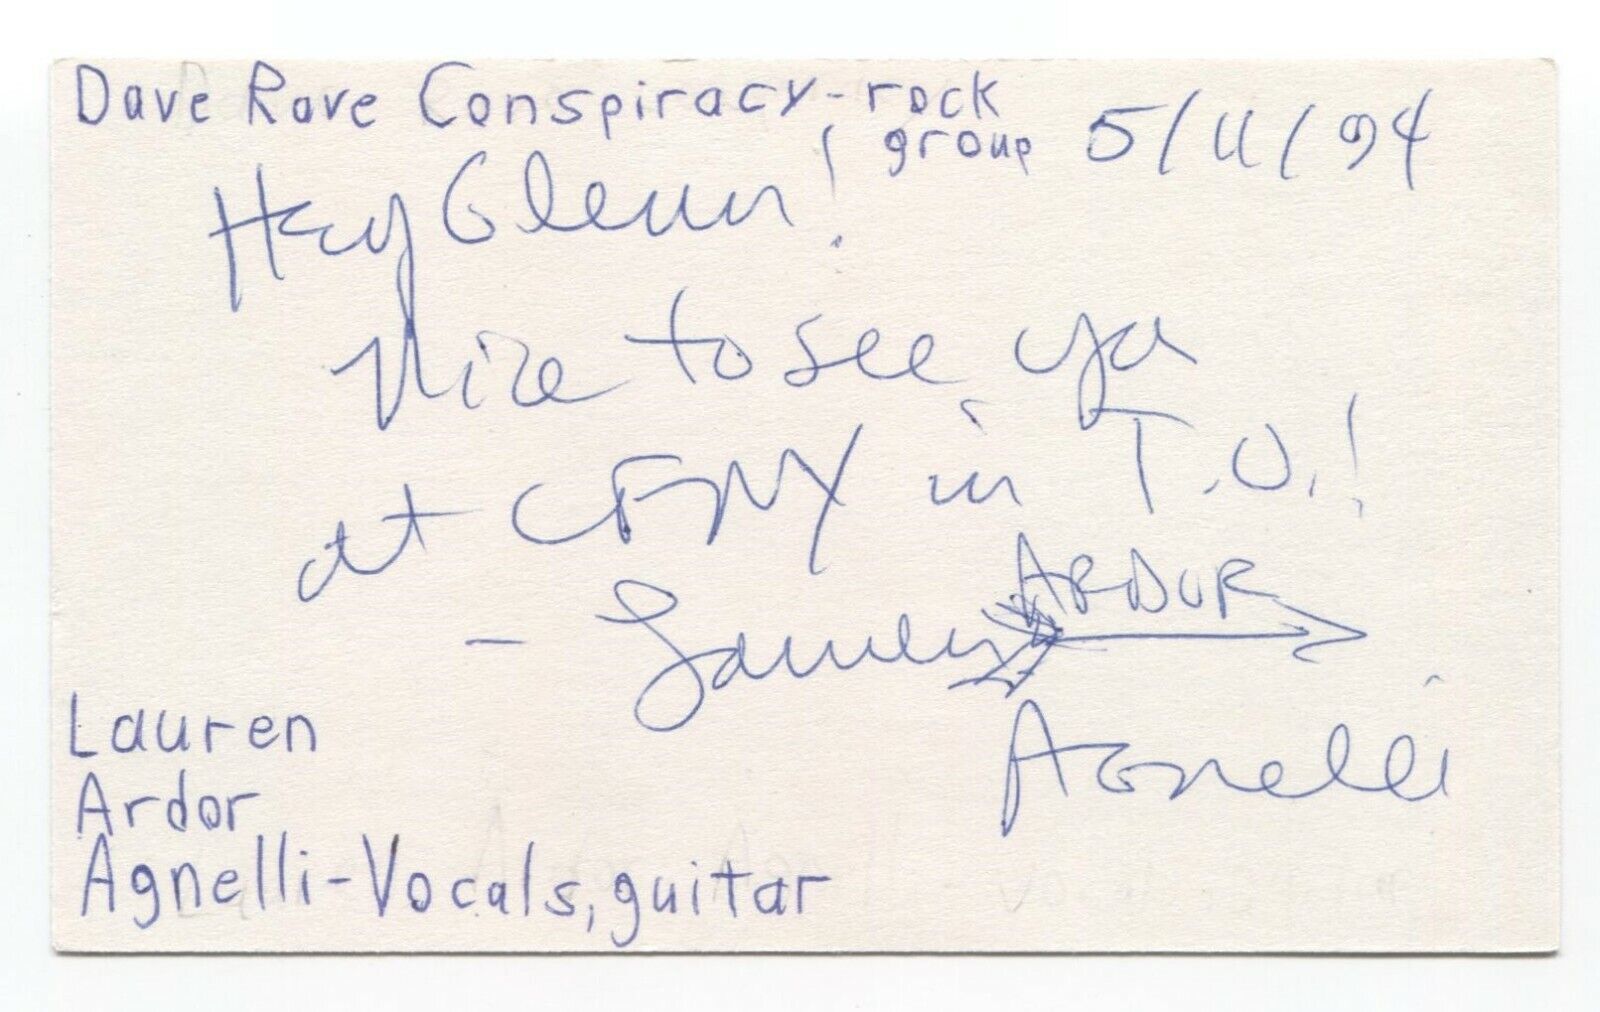 Dave Rave Conspiracy - rock
group 5/11/94
Hey Glenn!
Nice to see ya
at CFNY in T.O.!
ARDOR
- Lauren
Agnelli
Lauren
Ardor
Agnelli - Vocals, guitar